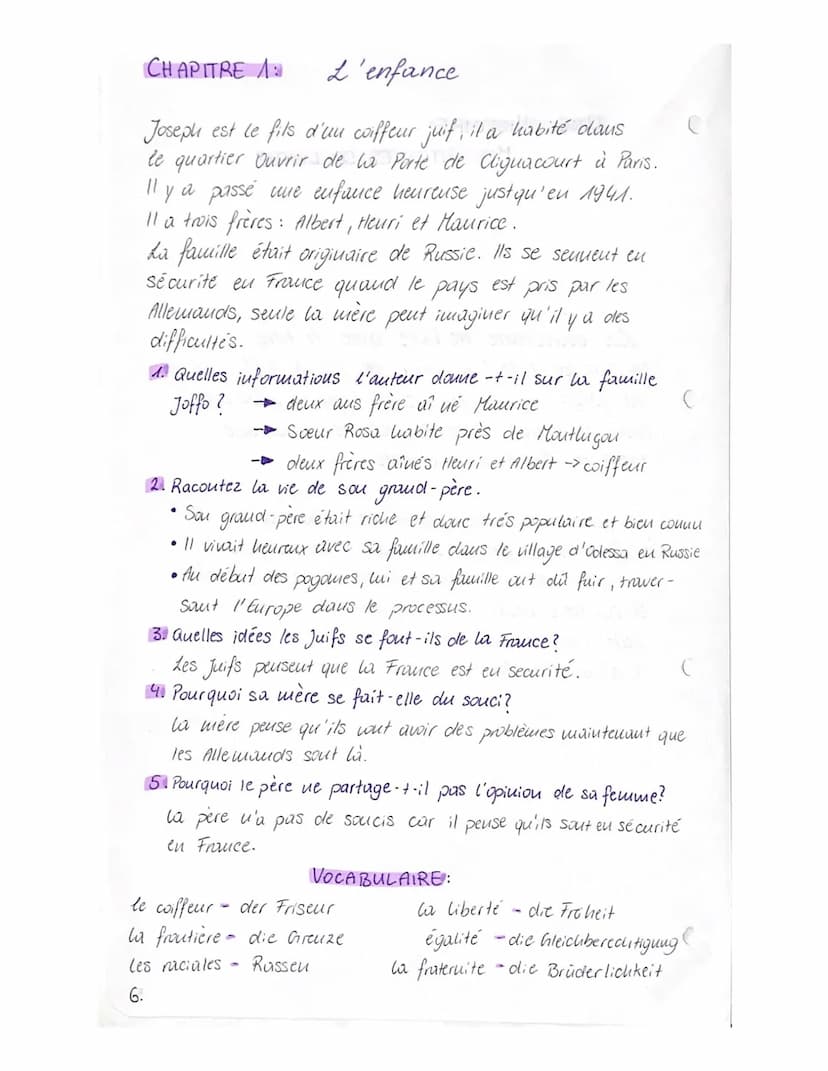 CHAPITRE 1: L'enfance
Joseph est le fils d'un coiffeur juif, il a habité dans
le quartier Ouvrir de la Porte de Clignacourt à Paris.
Il y a passé une enfance heureuse justqu'en 1941.
Il a trois frères: Albert, Henri et Maurice.
La famille était originaire de Russie. Ils se sennent en
sécurité en France quand le pays est pris par les
Allemands, seule la mère peut imaginer qu'il y a des
difficultés.
1. Quelles informations l'auteur donne-t-il sur la famille
Joffo? → deux ans frère aîné Maurice
→ Sœur Rosa habite près de Montlugon
→ deux frères aînés Henri et Albert → coiffeur
2. Racontez la vie de son grand-père.
• Son grand-père était riche et donc trés populaire et bien connu
• Il vivait heureux avec sa famille dans le village d'Odessa en Russie
• Au début des pogomes, lui et sa famille ont dû fuir, traver-
sant l'Europe dans le processus.
3. Quelles idées les Juifs se font-ils de la France?
Les Juifs pensent que la France est en securité.
4. Pourquoi sa mère se fait-elle du souci?
La mère pense qu'ils vont avoir des problèmes maintenant que
les Allemands sont là.
5. Pourquoi le père ne partage-t-il pas l'opinion de sa femme?
La père n'a pas de soucis car il pense qu'ils sont en sécurité
en France.
VOCABULAIRE:
le coiffeur - der Friseur
la liberté - die Freiheit
la frontière - die Grenze
égalité - die Gleichberechtigung
les raciales - Rassen
la fraternite - die Brüderlichkeit
6.